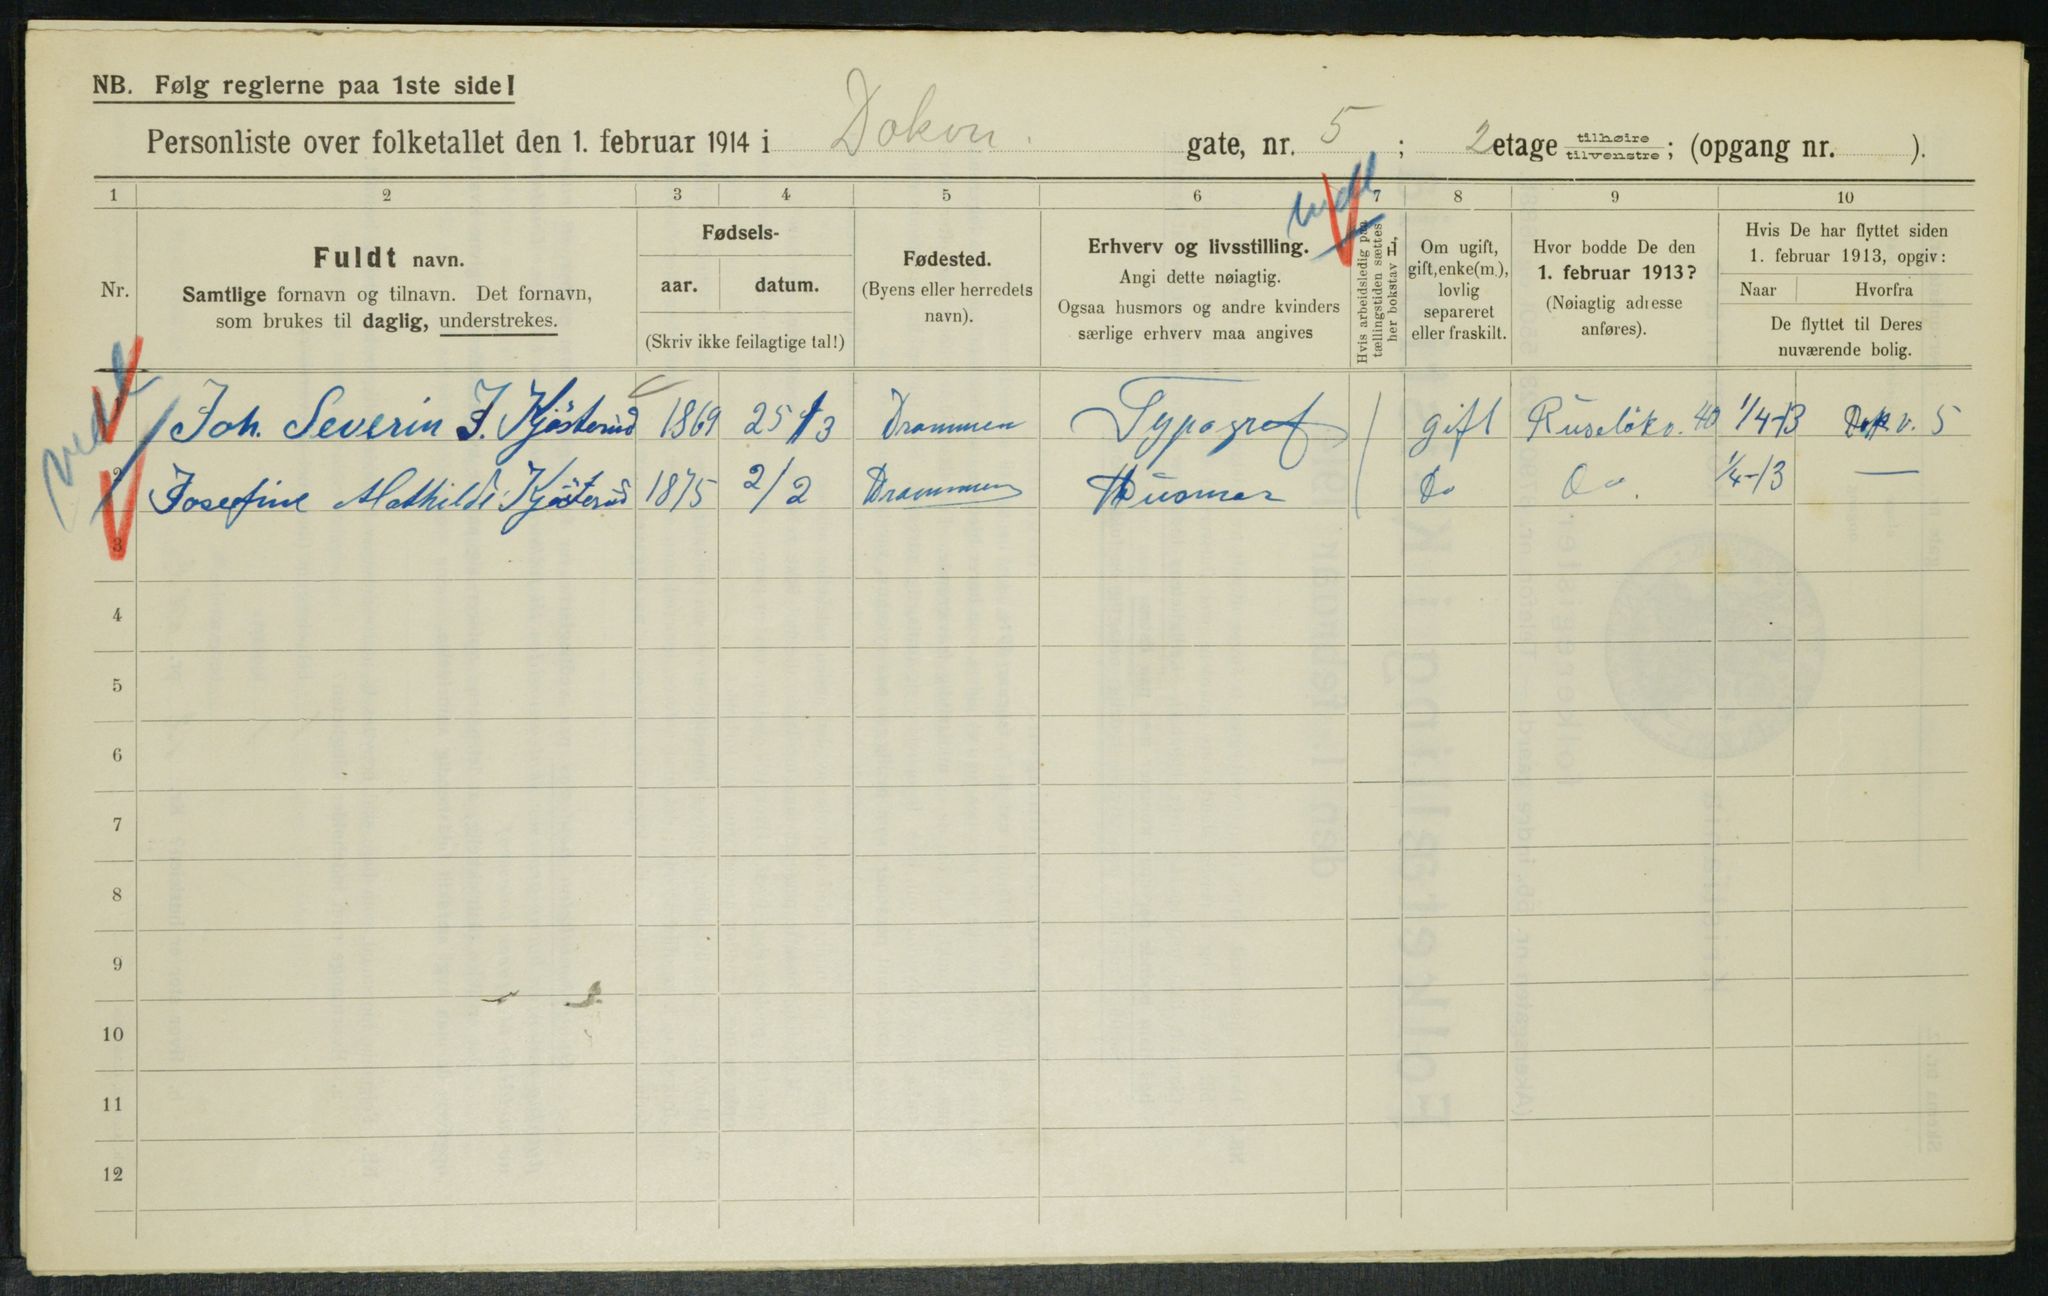 NB. Følg reglerne paa 1ste side!
Personliste over folketallet den 1. februar 1914 i Dokvn. gate, nr. 5; 2 etage tilhøire/tilvenstre; (opgang nr. ).
1 2 3 4 5 6 7 8 9 10
Nr.
Fuldt navn.
Samtlige fornavn og tilnavn. Det fornavn,
som brukes til daglig, understrekes.
Fødsels-
aar. datum.
(Skriv ikke feilagtige tal!)
Fødested.
(Byens eller herredets
navn).
Erhverv og livsstilling.
Angi dette nøiagtig.
Ogsaa husmors og andre kvinders
særlige erhverv maa angives
Hvis arbeidsledig paa
tællingstiden sættes
her bokstav L,
Om ugift,
gift, enke(m.),
lovlig
separeret
eller fraskilt.
Hvor bodde De den
1. februar 1913?
(Nøiagtig adresse
anføres).
Hvis De har flyttet siden
1. februar 1913, opgiv:
Naar Hvorfra
De flyttet til Deres
nuværende bolig.
Joh. Severin J. Kjösterud 1869 25/3 Drammen Typograf gift Ruselökv. 40 1/4-13 Dokv. 5
2 Josefine Mathilde Kjösterud 1875 2/2 Drammen Husmor Do Do. 1/4-13 —
3
4
5
6
7
8
9
10
11
12